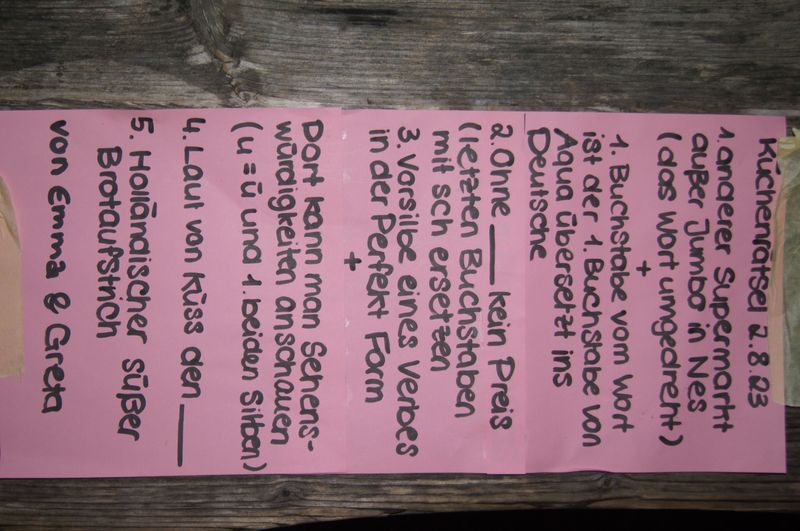 Küchenrätsel 2.8.23
1. anderer Supermarkt
außer Jumbo in Nes
(das Wort umgedreht)
+
1. Buchstabe vom Wort
ist der 1. Buchstabe von
Aqua übersetzt ins
Deutsche
2. Ohne ___ kein Preis
(letzten Buchstaben
mit sch ersetzen
3. Vorsilbe eines Verbes
in der Perfekt Form
+
Dort kann man Sehens-
würdigkeiten anschauen
(u = ü und 1. beiden Silben)
4. Laut von Küss den ___
5. Holländischer süßer
Brotaufstrich
von Emma & Greta